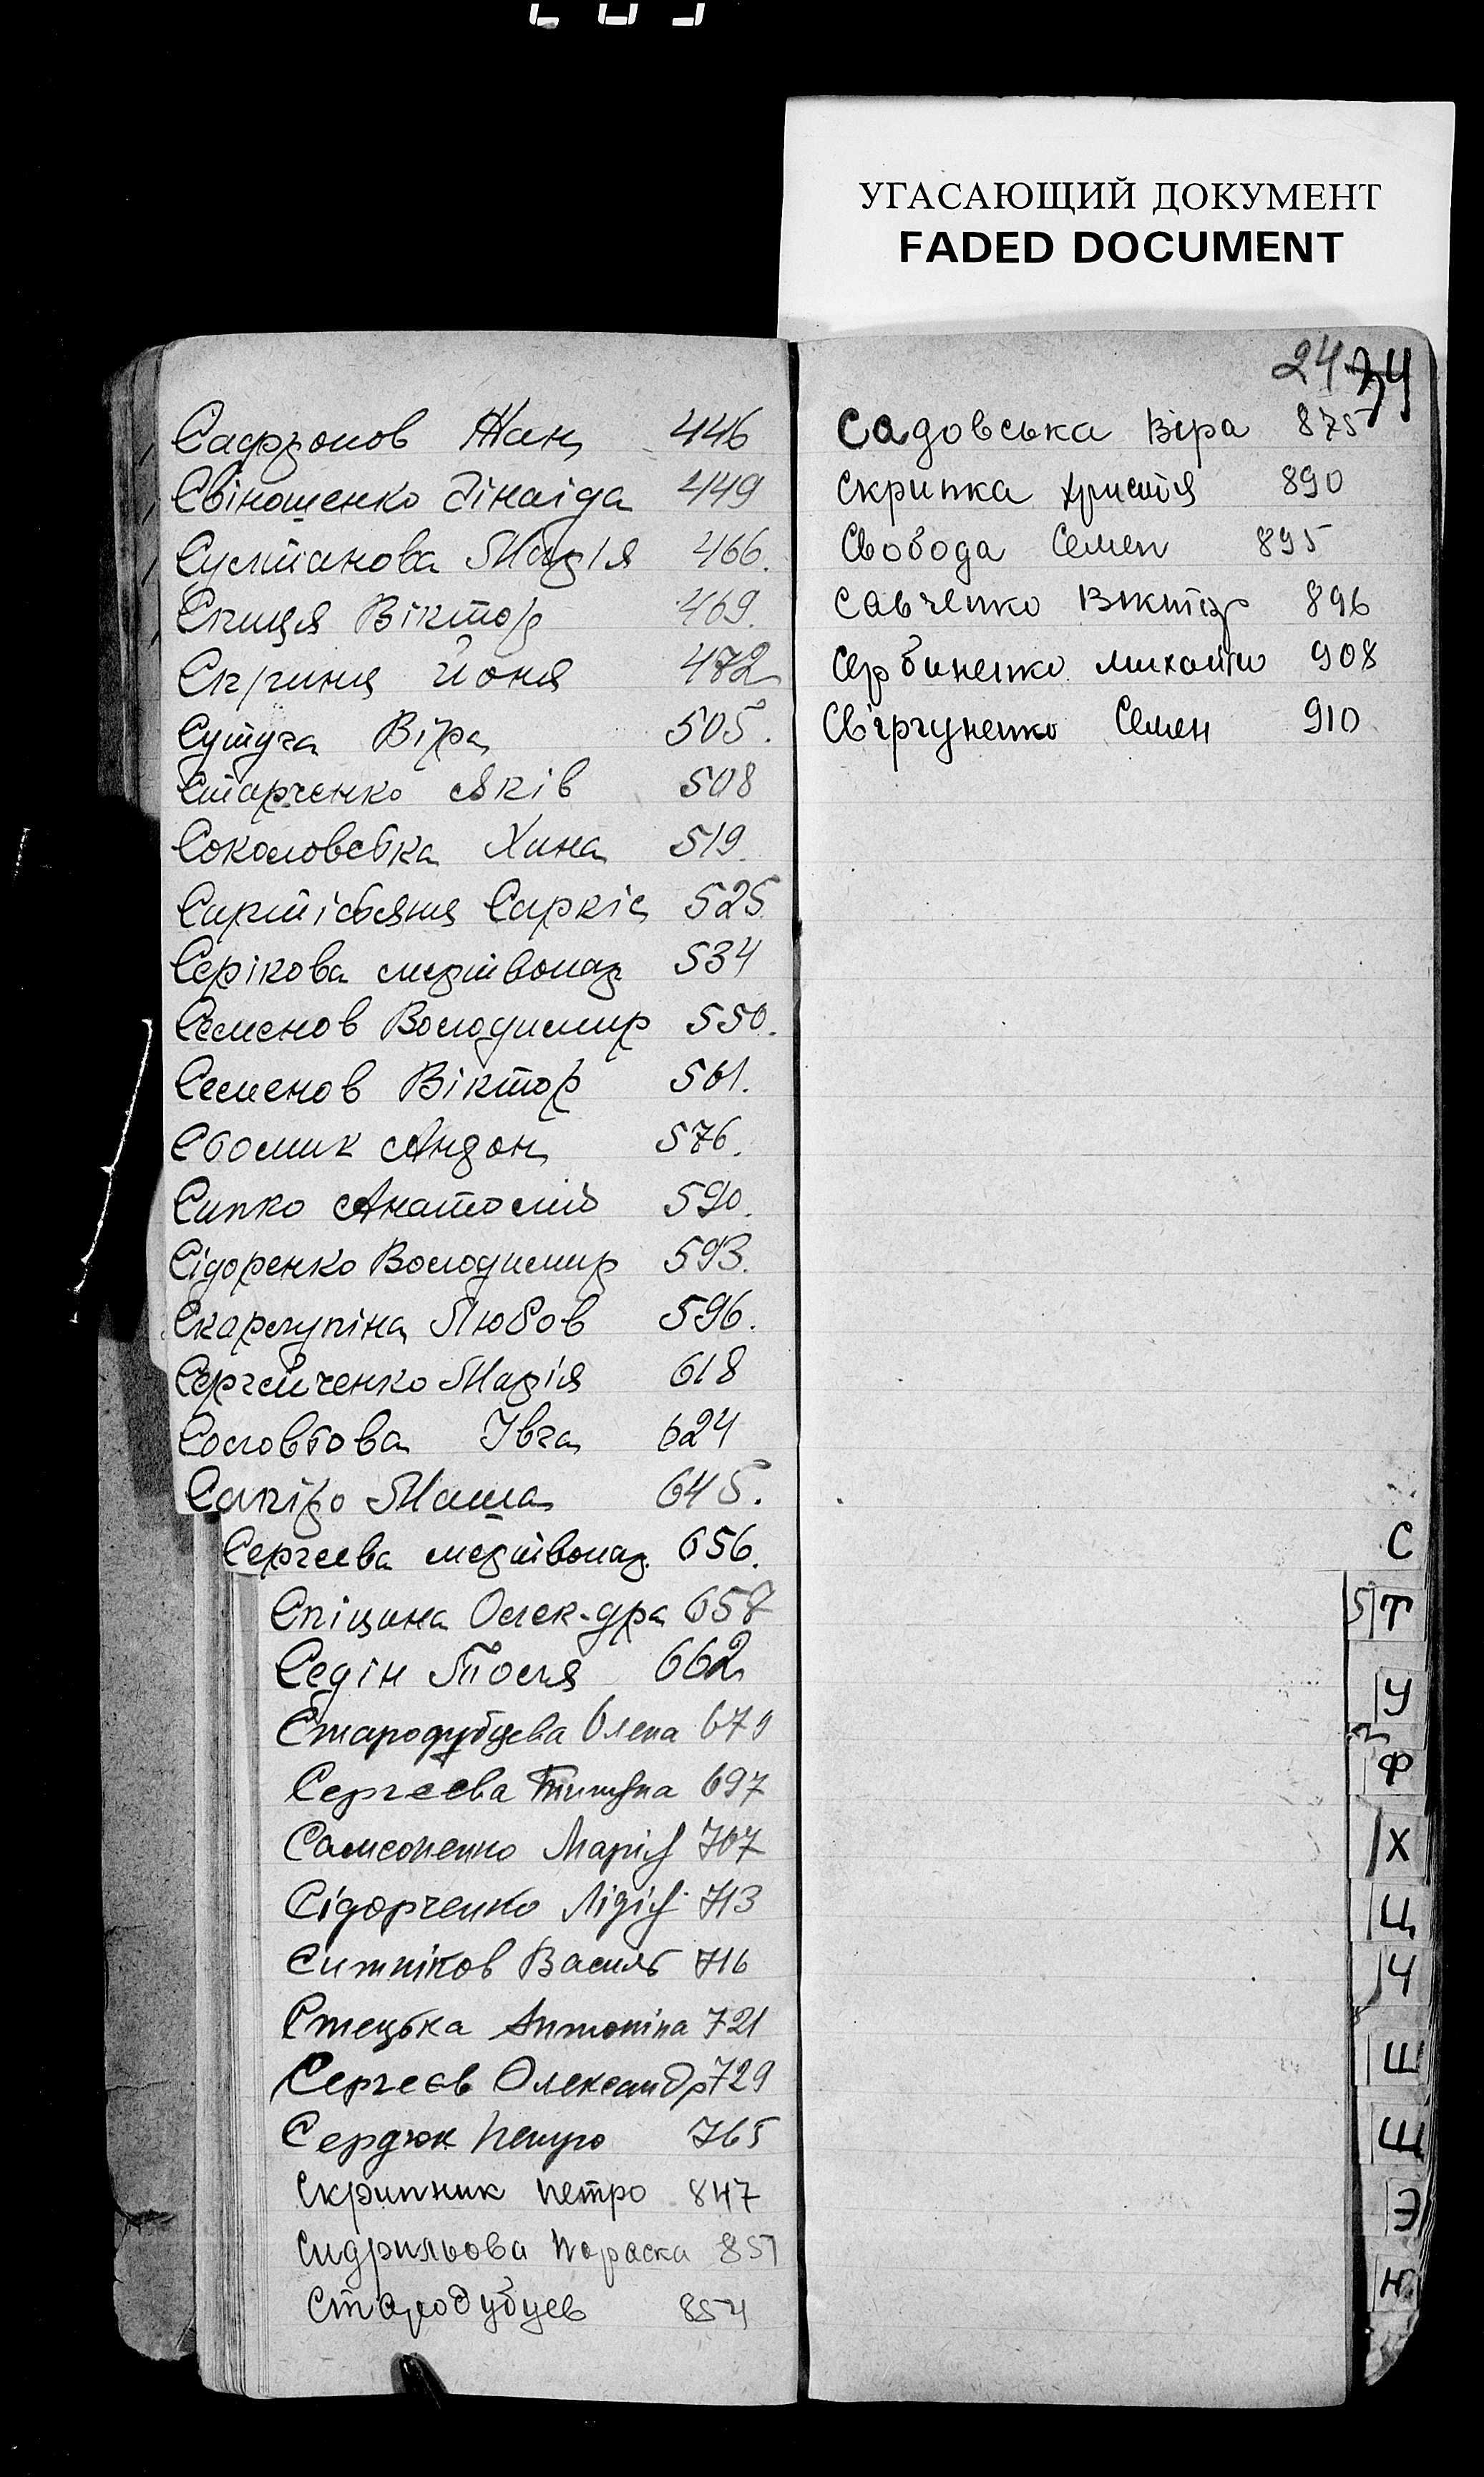 УГАСАЮЩИЙ ДОКУМЕНТ
FADED DOCUMENT
Сафронов Жан 446
Свіношенко Зінаїда 449
Султанова Марія 466.
Спиця Віктор 469.
472
Сутуга Віра 505.
Старченко Яків 508
Соколовська Хина 519.
Саркіс 525
Серікова мертвонар 534
Семенов Володимир 550.
Семенов Віктор 561.
Андон 576.
Сипко Анатолій 590.
Сідоренко Володимир 593.
Скарлупіна Любов 596.
Сергейченко Марія 618
Соловьова Івга 624
Сапіро Маша 645.
Сергеева мертвонар. 656.
Спіцина Олек-дра 658
Седін Толя 662
Стародубцева Олена 679
Сергеева 697
Самсоненко Марія 707
Сідорченко Лідія 713
Ситніков Василь 716
Стецька Антоніна 721
Сергеєв Олександр 729
Сердюк Петро 765
Скрипник Петро 847
Сидрильова Параска 851
Стародубцев 854
24 24
Садовська Віра 875
Скрипка Христя 890
Свобода Семен 895
Савченко Віктор 896
Сербиненко Михайло 908
Свіргуненко Семен 910
С
Т
У
Ф
Х
Ц
Ч
Ш
Щ
Э